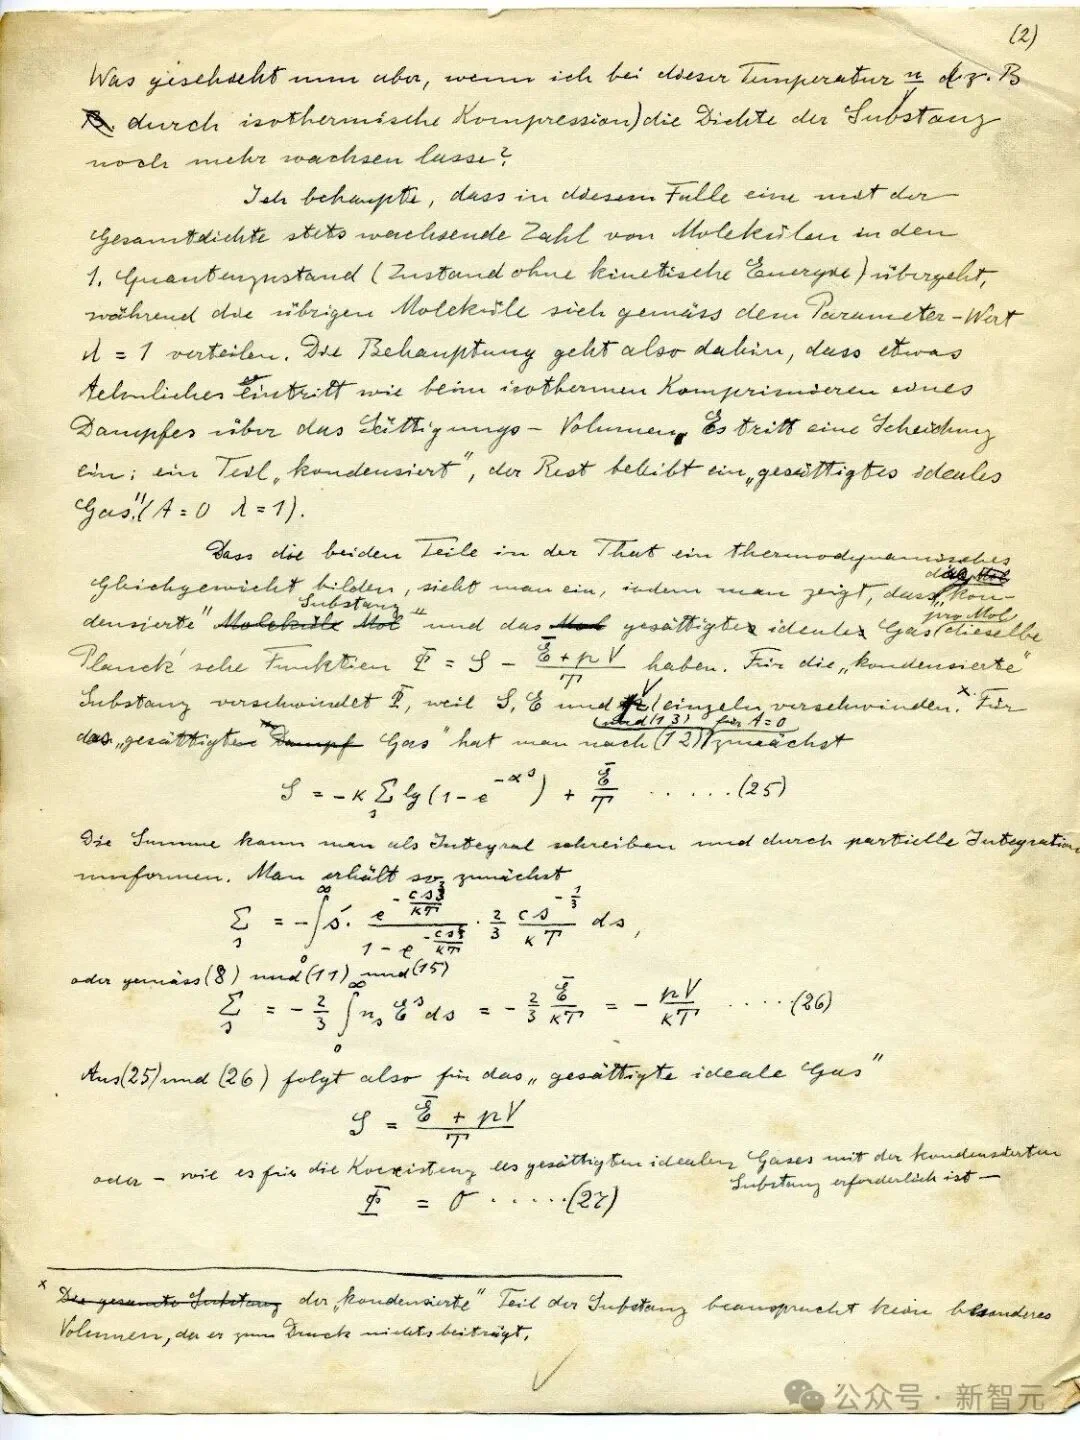 (2)
Was geschieht nun aber, wenn ich bei dieser Temperatur n/v (z. B.
durch isothermische Kompression) die Dichte der Substanz
noch mehr wachsen lasse?
Ich behaupte, dass in diesem Falle eine mit der
Gesamtdichte stets wachsende Zahl von Molekülen in den
1. Quantenzustand (Zustand ohne kinetische Energie) übergeht,
während die übrigen Moleküle sich gemäss dem Parameter-Wert
λ = 1 verteilen. Die Behauptung geht also dahin, dass etwas
Aehnliches eintritt wie beim isothermen Komprimieren eines
Dampfes über das Sättigungs-Volumen. Es tritt eine Scheidung
ein; ein Teil „kondensiert", der Rest bleibt ein „gesättigtes ideales
Gas." (A = 0 λ = 1).
Dass die beiden Teile in der That ein thermodynamisches
Gleichgewicht bilden, sieht man ein, indem man zeigt, dass die „kon-
densierte" Substanz und das gesättigte ideale Gas pro Mol dieselbe
Planck'sche Funktion Φ̄ = S − (Ē + pV)/T haben. Für die „kondensierte"
Substanz verschwindet Φ̄, weil S, E und V einzeln verschwinden.ˣ Für
das „gesättigte Gas" hat man nach (12) und (13) für A = 0 zunächst
S = −κ Σₛ lg(1 − e^(−αˢ)) + Ē/T ......(25)
Die Summe kann man als Integral schreiben und durch partielle Integration
umformen. Man erhält so zunächst
Σₛ = −∫₀^∞ s · e^(−cs^(2/3)/κT) / (1 − e^(−cs^(2/3)/κT)) · 2/3 cs^(−1/3)/κT ds,
oder gemäss (8) und (11) und (15)
Σₛ = −2/3 ∫₀^∞ nₛ Eˢ ds = −2/3 Ē/κT = −pV/κT .....(26)
Aus (25) und (26) folgt also für das „gesättigte ideale Gas"
S = (Ē + pV)/T
oder – wie es für die Koexistenz des gesättigten idealen Gases mit der kondensierten
Substanz erforderlich ist –
Φ̄ = 0 ......(27)
x der „kondensierte" Teil der Substanz beansprucht kein besonderes
Volumen, da er zum Druck nichts beiträgt.
公众号 · 新智元